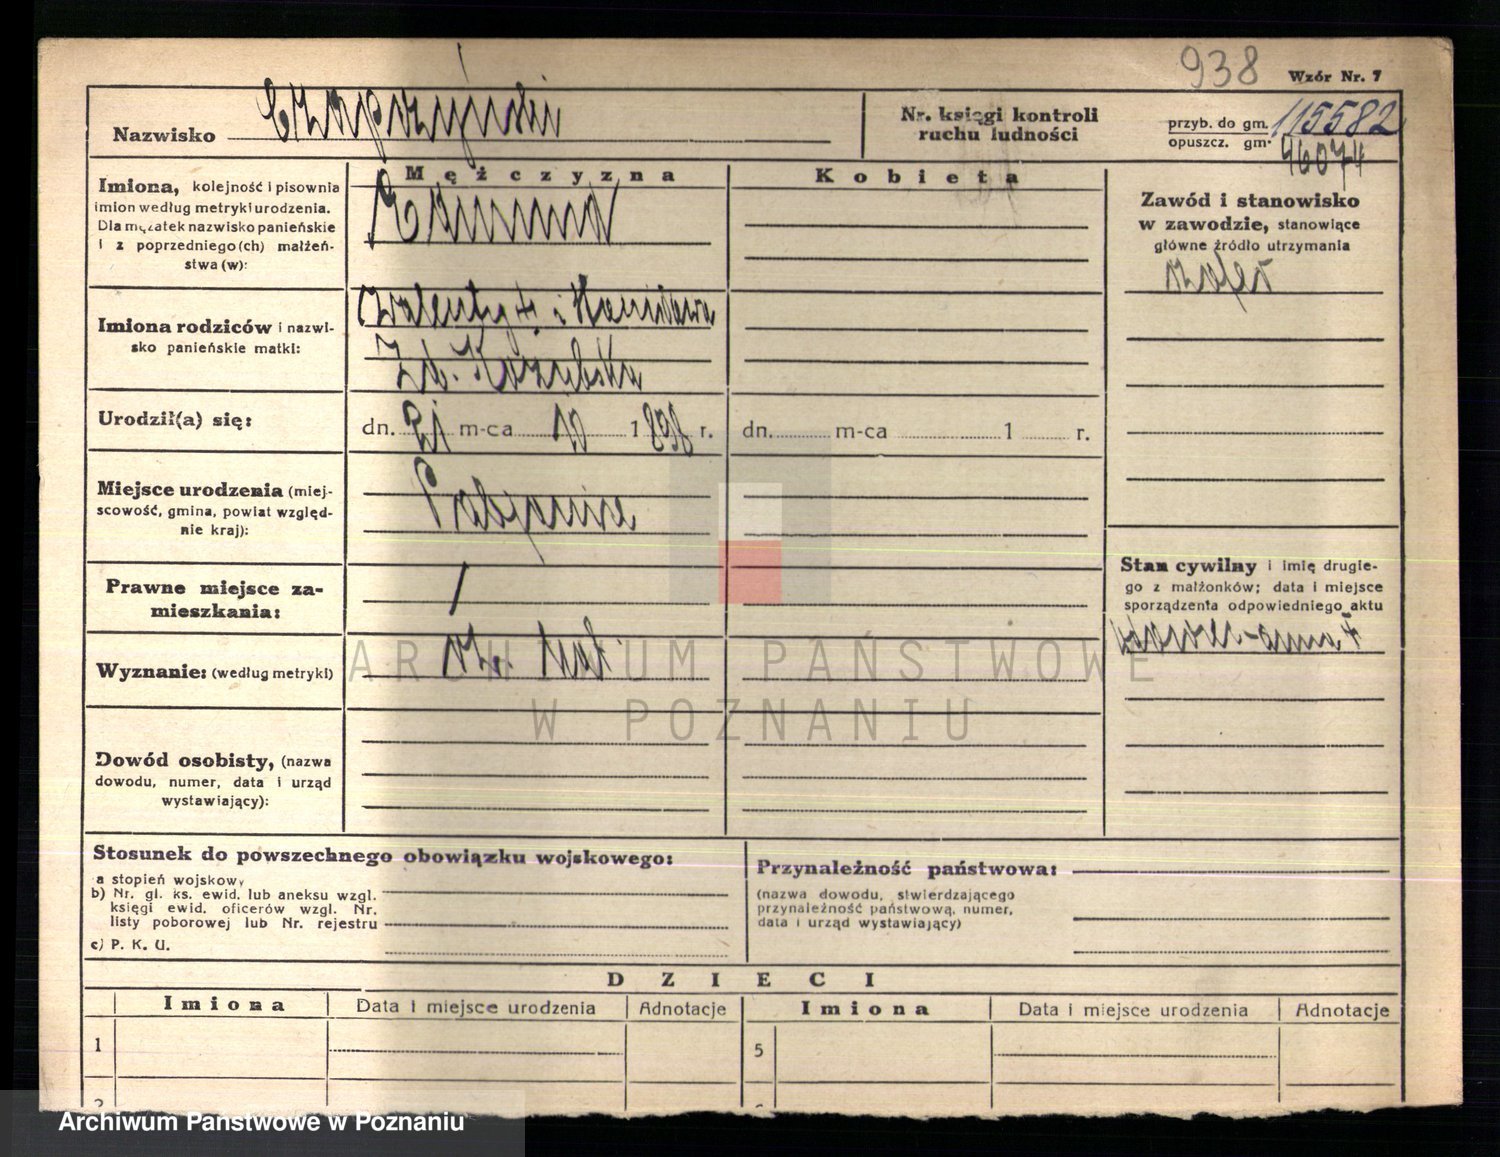 938
Wzór Nr. 7
Nazwisko Czapczyński
Nr. księgi kontroli
ruchu ludności
przyb. do gm. 115582
opuszcz. gm. 46074
Mężczyzna
Kobieta
Imiona, kolejność i pisownia
imion według metryki urodzenia.
Dla mężatek nazwisko panieńskie
i z poprzedniego(ch) małżeń-
stwa (w):
Edmund
Zawód i stanowisko
w zawodzie, stanowiące
główne źródło utrzymania
szofer
Imiona rodziców i nazwi-
sko panieńskie matki:
Walenty + i Stanisława
Urodził(a) się:
dn. 21 m-ca 10 1898 r.
dn. m-ca 1 r.
Miejsce urodzenia (miej-
scowość, gmina, powiat względ-
nie kraj):
Pabjanice
Stan cywilny i imię drugie-
go z małżonków; data i miejsce
sporządzenia odpowiedniego aktu
Prawne miejsce za-
mieszkania:
/
Wyznanie: (według metryki)
rz. kat
ARCHIWUM PAŃSTWOWE
W POZNANIU
Dowód osobisty, (nazwa
dowodu, numer, data i urząd
wystawiający):
Stosunek do powszechnego obowiązku wojskowego:
a stopień wojskowy
b) Nr. gł. ks. ewid. lub aneksu wzgl.
księgi ewid. oficerów wzgl. Nr.
listy poborowej lub Nr. rejestru
c) P. K. U.
Przynależność państwowa:
(nazwa dowodu, stwierdzającego
przynależność państwową, numer,
data i urząd wystawiający)
DZIECI
Imiona Data i miejsce urodzenia Adnotacje Imiona Data i miejsce urodzenia Adnotacje
1 5
Archiwum Państwowe w Poznaniu